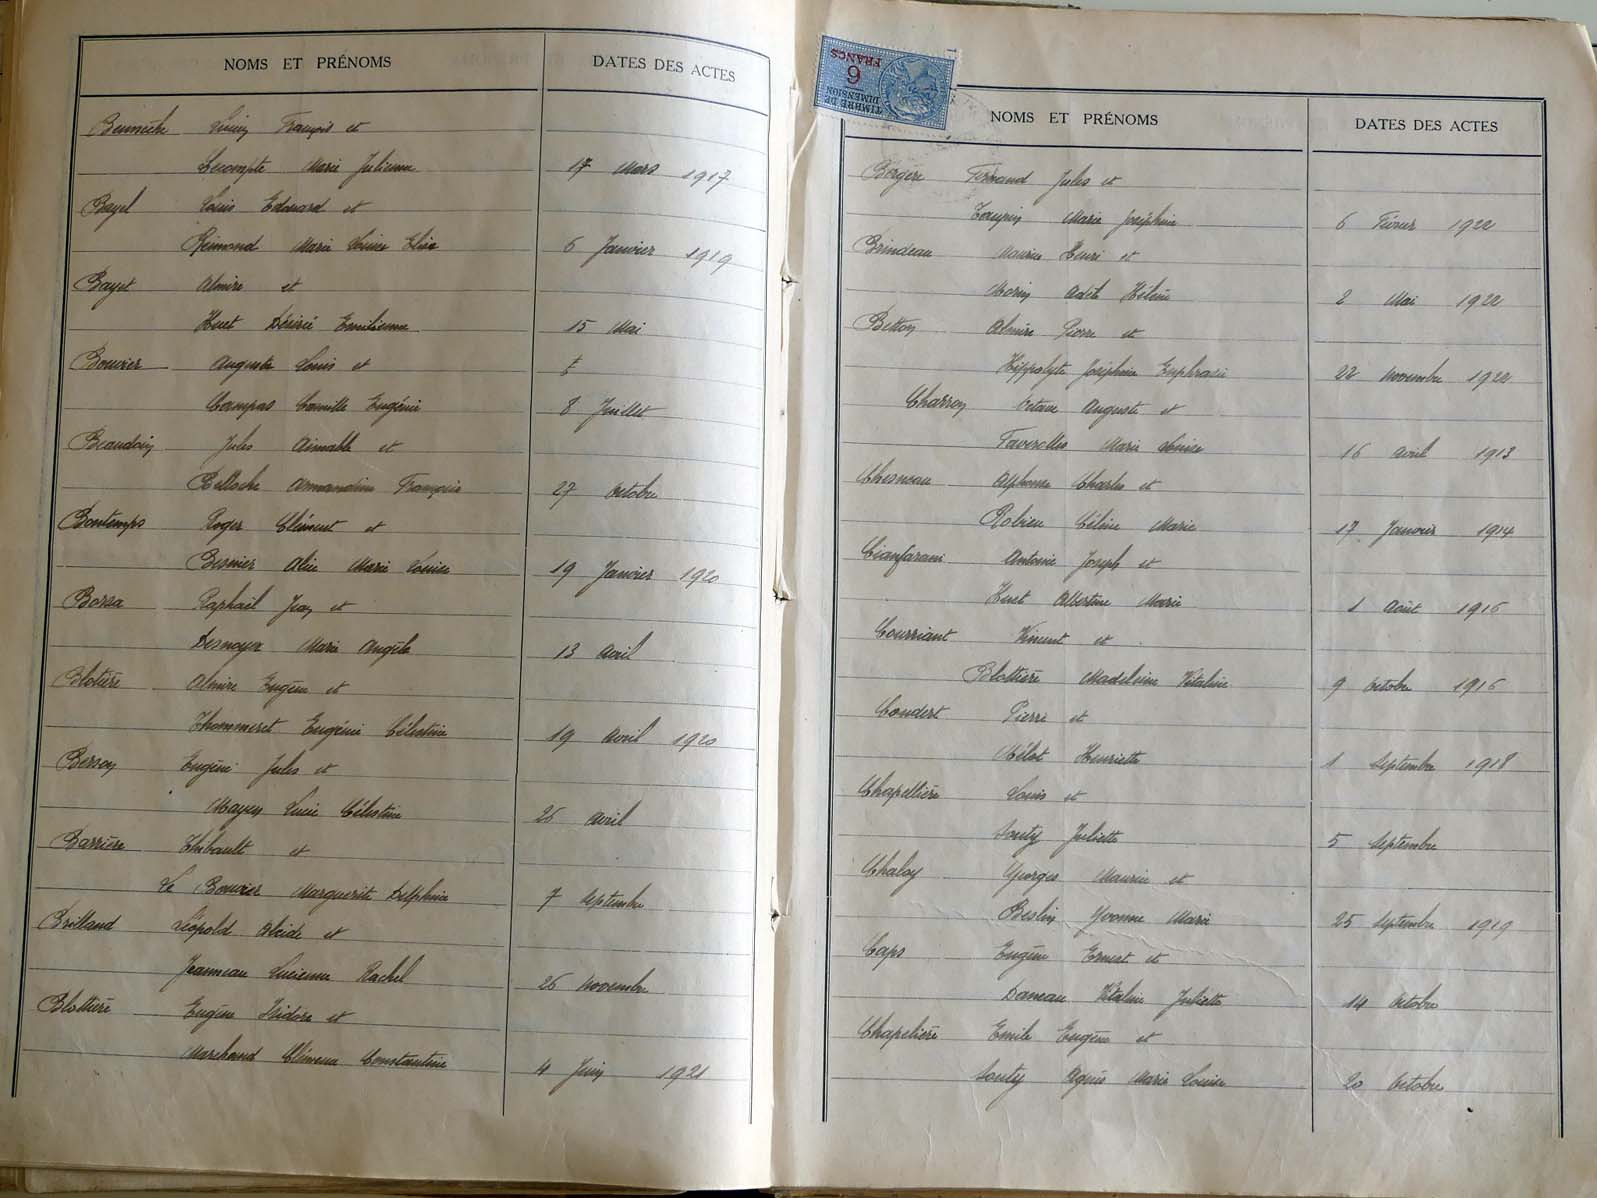 NOMS ET PRÉNOMS DATES DES ACTES
François et
Lecompte Marie Julienne 17 Mars 1917
Bayel Louis Edouard et
Reimond Marie Louise Elise 6 Janvier 1919
Bayet Almire et
Huet Désirée Emilienne 15 Mai
Bouvier Auguste Louis et
Campas Camille Eugénie 8 Juillet
Beaudoin Jules Aimable et
Pelloche Amandine Françoise 27 Octobre
Bontemps Roger Clément et
Besnier Alice Marie Louise 19 Janvier 1920
Borsa Raphaël Jean et
Desnoyer Marie Angèle 13 Avril
Blotière Almire Eugène et
Thommeret Eugénie Célestine 19 Avril 1920
Berson Eugène Jules et
Lucie Célestine 26 Avril
Barrière Thibault et
Le Bouvier Marguerite Delphine 7 Septembre
Brilland Léopold Alcide et
Jeanneau Lucienne Rachel 26 Novembre
Blottière Eugène Isidore et
Marchand Clémence Constantine 4 Juin 1921
TIMBRE DE DIMENSION
6 FRANCS
NOMS ET PRÉNOMS DATES DES ACTES
Bergère Fernand Jules et
Taupin Marie Joséphine 6 Février 1922
Brindeau Maurice Henri et
Morin Adèle Hélène 2 Mai 1922
Betton Almire Pierre et
Hippolyte Joséphine Euphrasie 22 Novembre 1922
Charron Octave Auguste et
Faverolles Marie Louise 16 Avril 1913
Chesneau Alphonse Charles et
Robieu Céline Marie 17 Janvier 1914
Cianfarani Antoine Joseph et
Huet Albertine Marie 1 Août 1916
Courriant Vincent et
Blottière Madeleine Vitaline 9 Octobre 1916
Coudert Pierre et
Mélot Henriette 1 Septembre 1918
Chapellière Louis et
Souty Juliette 5 Septembre
Chaloy Georges Maurice et
Beslin Yvonne Marie 25 Septembre 1919
Caps Eugène Ernest et
Daneau Vitaline Juliette 14 Octobre
Chapelière Emile Eugène et
Souty Agnès Marie Louise 20 Octobre